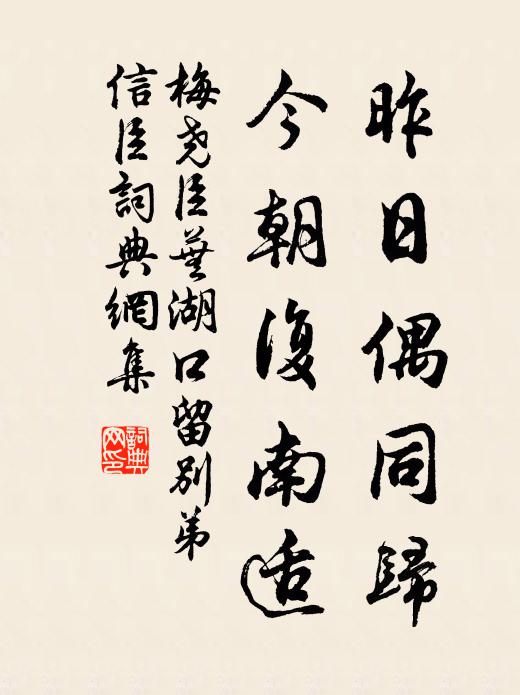 昨日偶同歸
今朝復南适
梅尧臣蕪湖口留別弟
信臣詞典網集
詞典網印